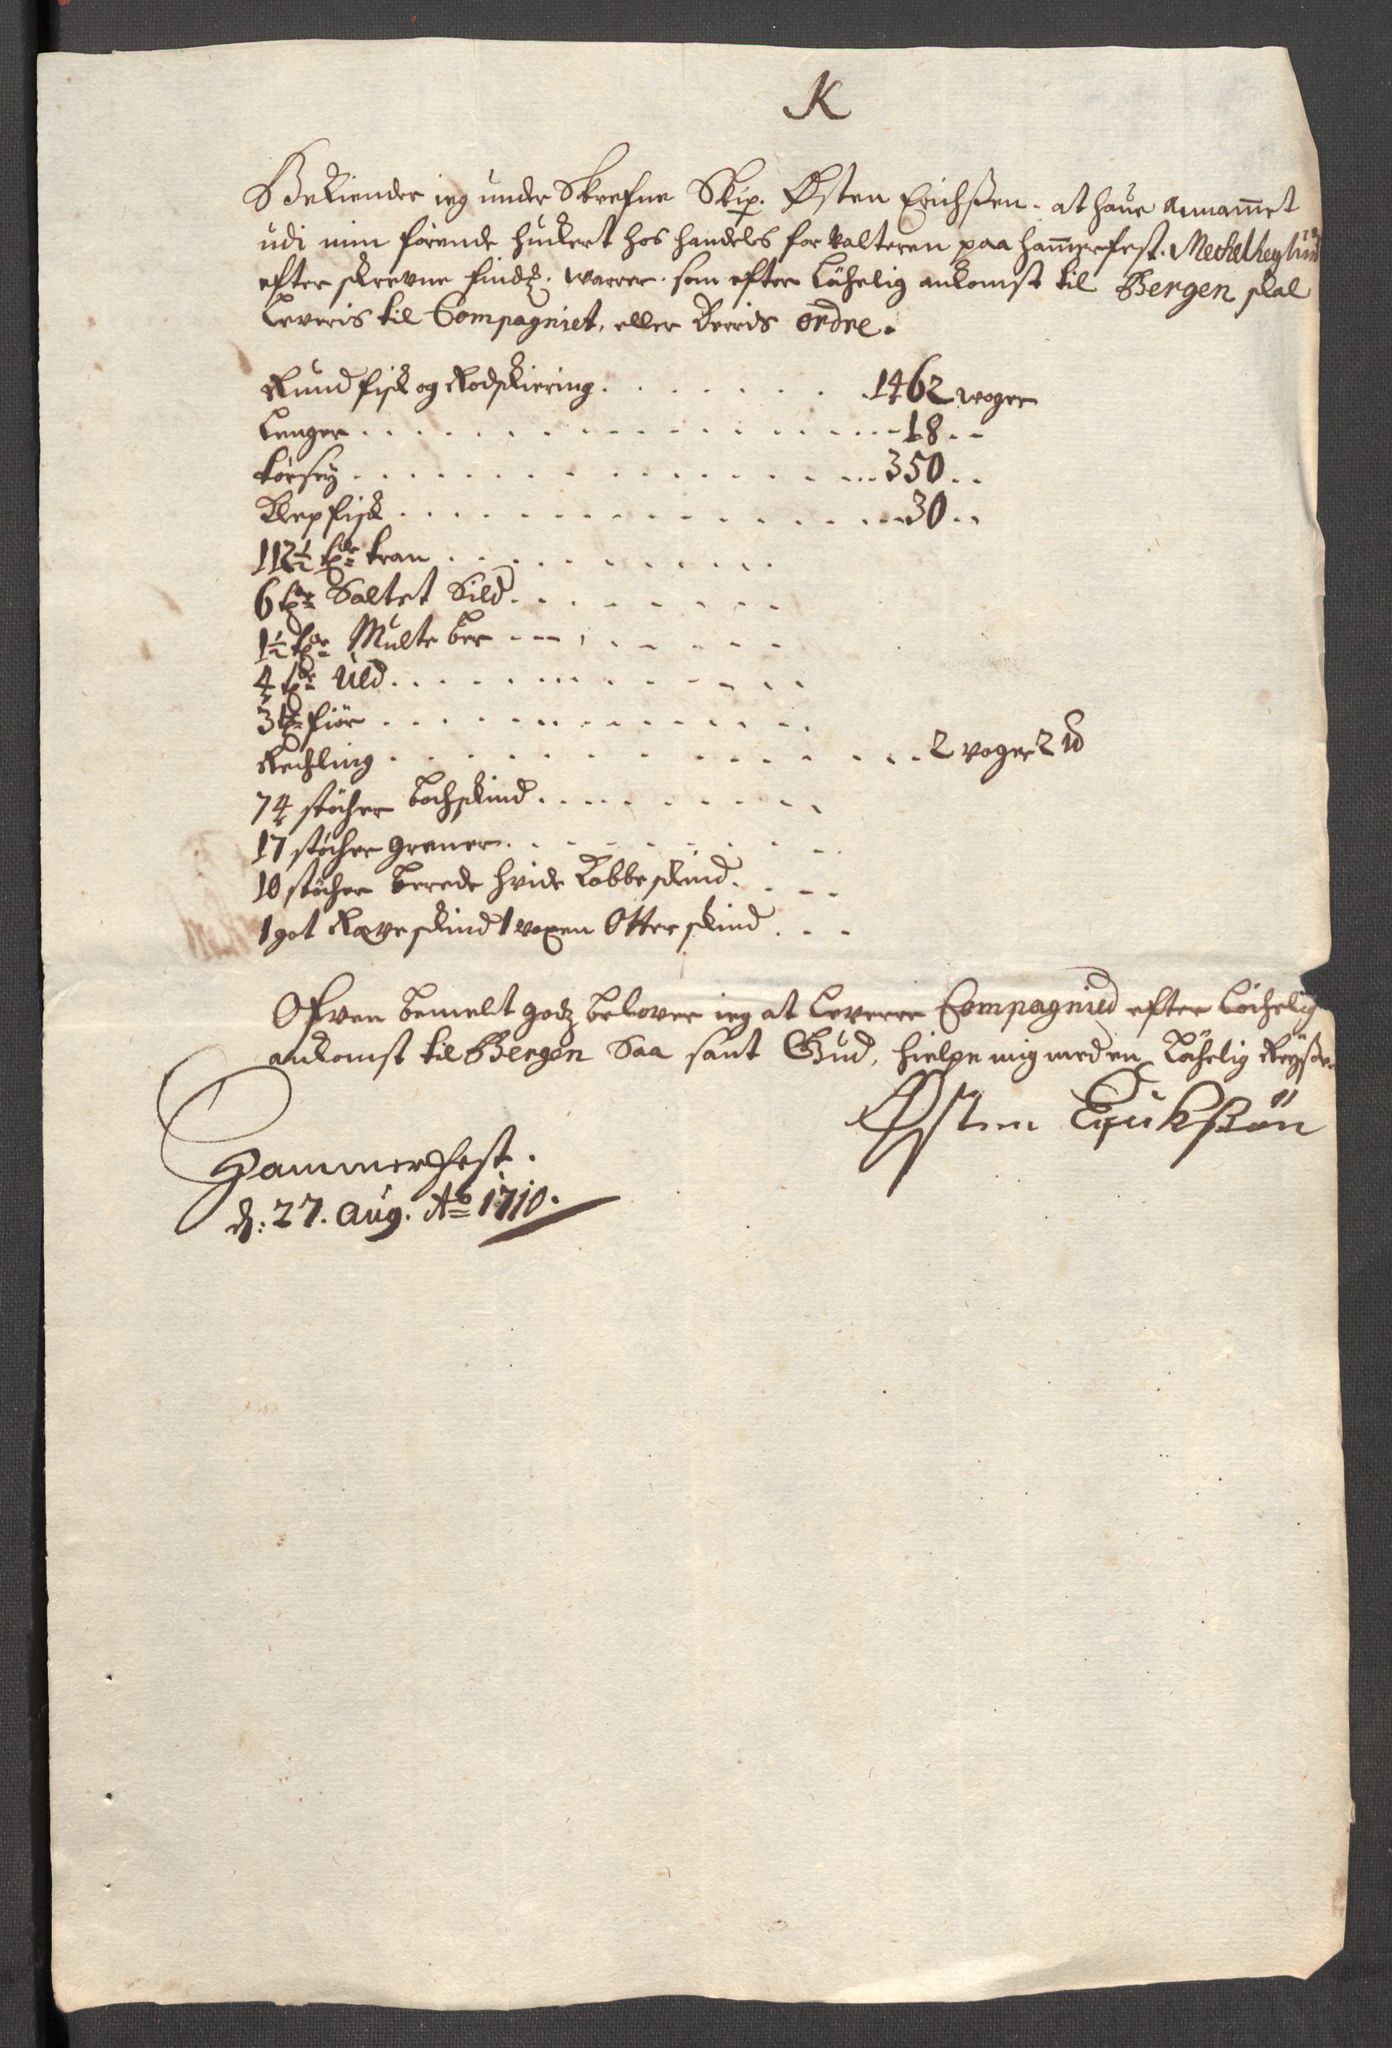 K
Bekiender ieg under Skrefne Skip. Østen Erichßen. at haue annammet
udi min førende huckert hos handels forvalteren paa hammerfest. Mechel heylun
efter skrevne findz. warrer. som efter Løchelig ankomst til Bergen skal
Leveris til Compagniet, eller deris ordre.
Rundfisk og Rodskiering . . . 1462 woger
Lenger . . . 18 . .
tørsey . . . 350 . .
Klepfisk . . . 30 . .
112½ tdr tran . . .
6 tdr Saltet Sild . . .
1½ tdr Multeber . . .
4 tdr Uld . . .
3 tdr fiør . . .
Rechling . . . 2 voger 2 lb
74 støcher bochskind . . .
17 støcher grener . . .
10 støcher berede hvide Kobbeskind . . .
1 got Ræveskind 1 voxen Otterskind . . .
Ofven bemelt godz belover ieg at Leverre Compagnied efter Løchelig
ankomst til Bergen Saa sant Gud, hielpe mig med en Løchelig Reyße
Østen Erickßøn
Hammerfest.
d: 27. Aug. Ao 1710.